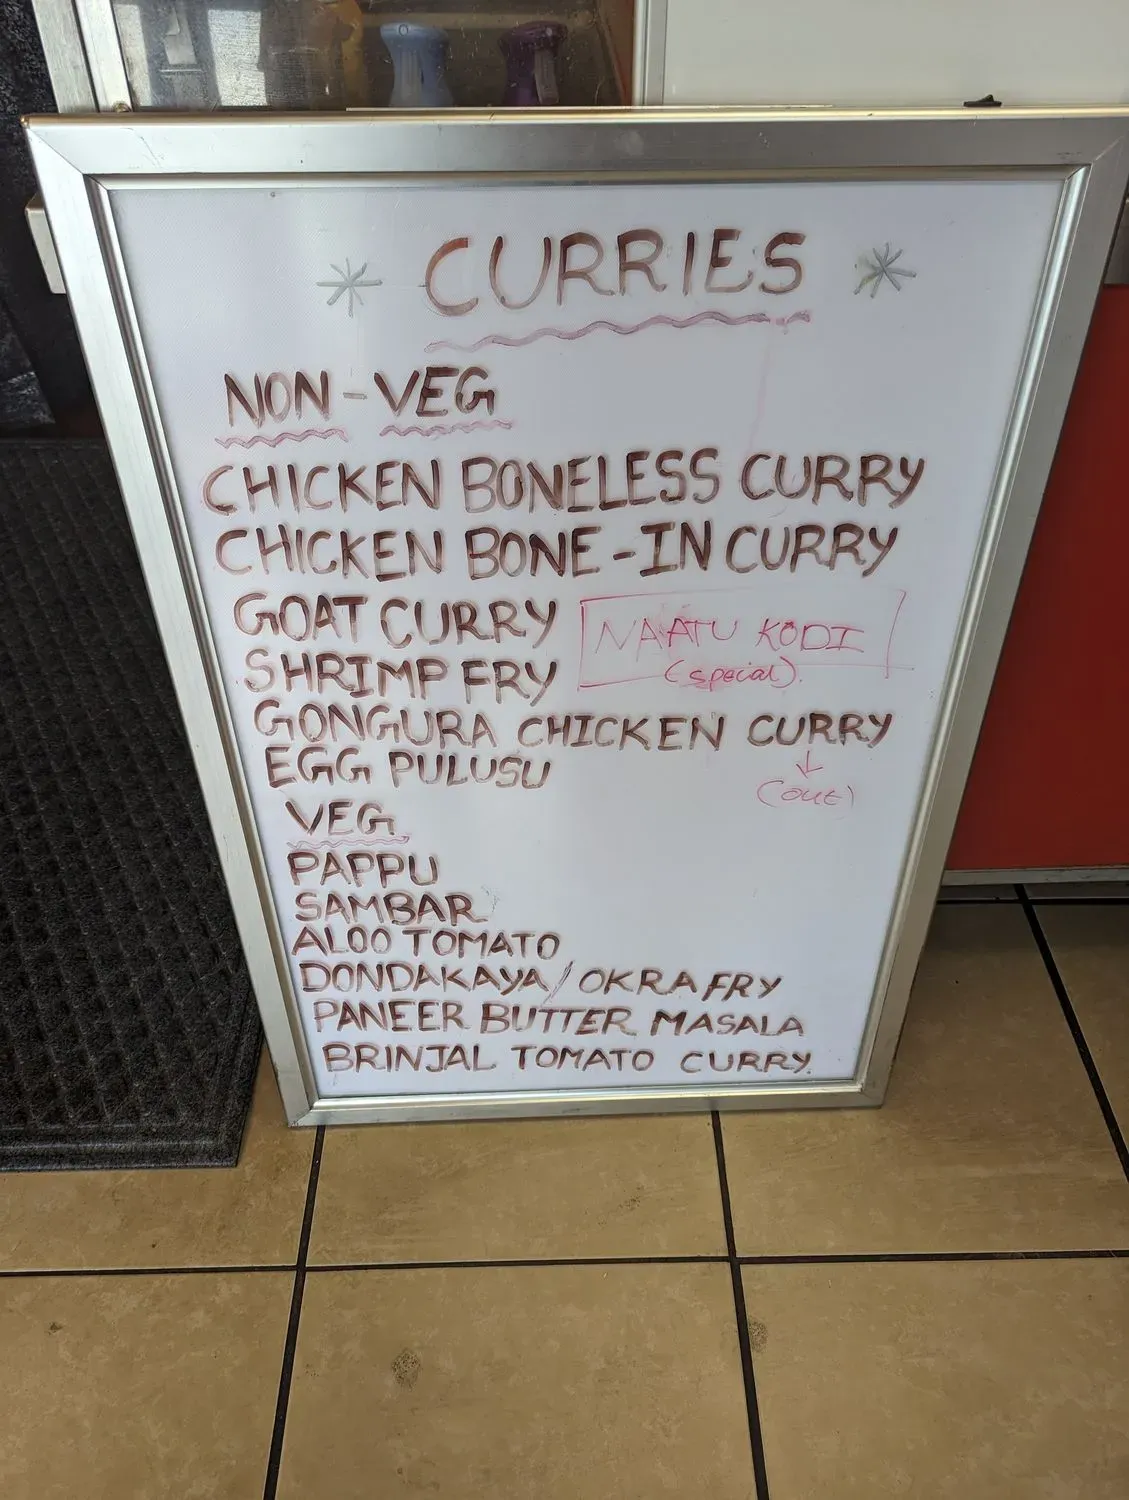 * CURRIES *
NON-VEG
CHICKEN BONELESS CURRY
CHICKEN BONE-IN CURRY
GOAT CURRY
NAATU KODI
(special).
SHRIMP FRY
GONGURA CHICKEN CURRY
↓
(out)
EGG PULUSU
VEG
PAPPU
SAMBAR
ALOO TOMATO
DONDAKAYA/OKRA FRY
PANEER BUTTER MASALA
BRINJAL TOMATO CURRY.